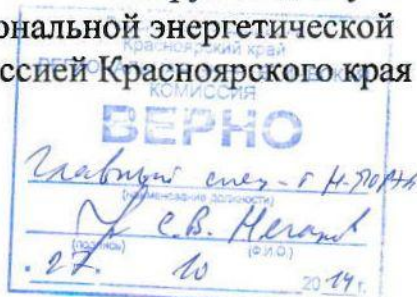 ональной энергетической
ссией Красноярского края
Красноярский край
КОМИССИЯ
ВЕРНО
Главный спец-т
(наименование должности)
С.В.
(подпись) (Ф.И.О.)
. 27. 10 2014 г.